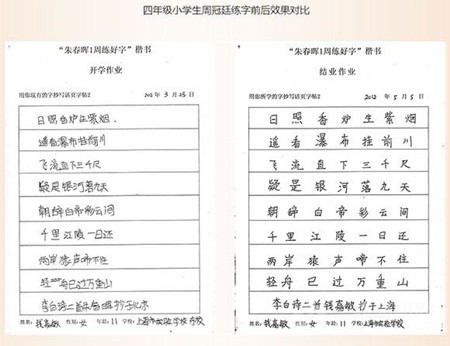 四年级小学生周冠廷练字前后效果对比
“朱春晖1周练好字”楷书
开学作业
用你现有的字抄写活页字帖2 3月28日
日照香炉生紫烟.
遥看瀑布挂前川
飞流直下三千尺
疑是银河落九天
朝辞白帝彩云间
千里江陵一日还
两岸猿声啼不住
轻舟已过万重山
李白诗二首
姓名:钱嘉敏 性别:女 年龄:11 学校:上海市实验学校东校
“朱春晖1周练好字”楷书
结业作业
用你所学的字抄写活页字帖2 2012 5月5日
日照香炉生紫烟
遥看瀑布挂前川
飞流直下三千尺
疑是银河落九天
朝辞白帝彩云间
千里江陵一日还
两岸猿声啼不住
轻舟已过万重山
李白诗二首钱嘉敏抄于上海
姓名:钱嘉敏 性别:女 年龄:11 学校:上海市实验学校